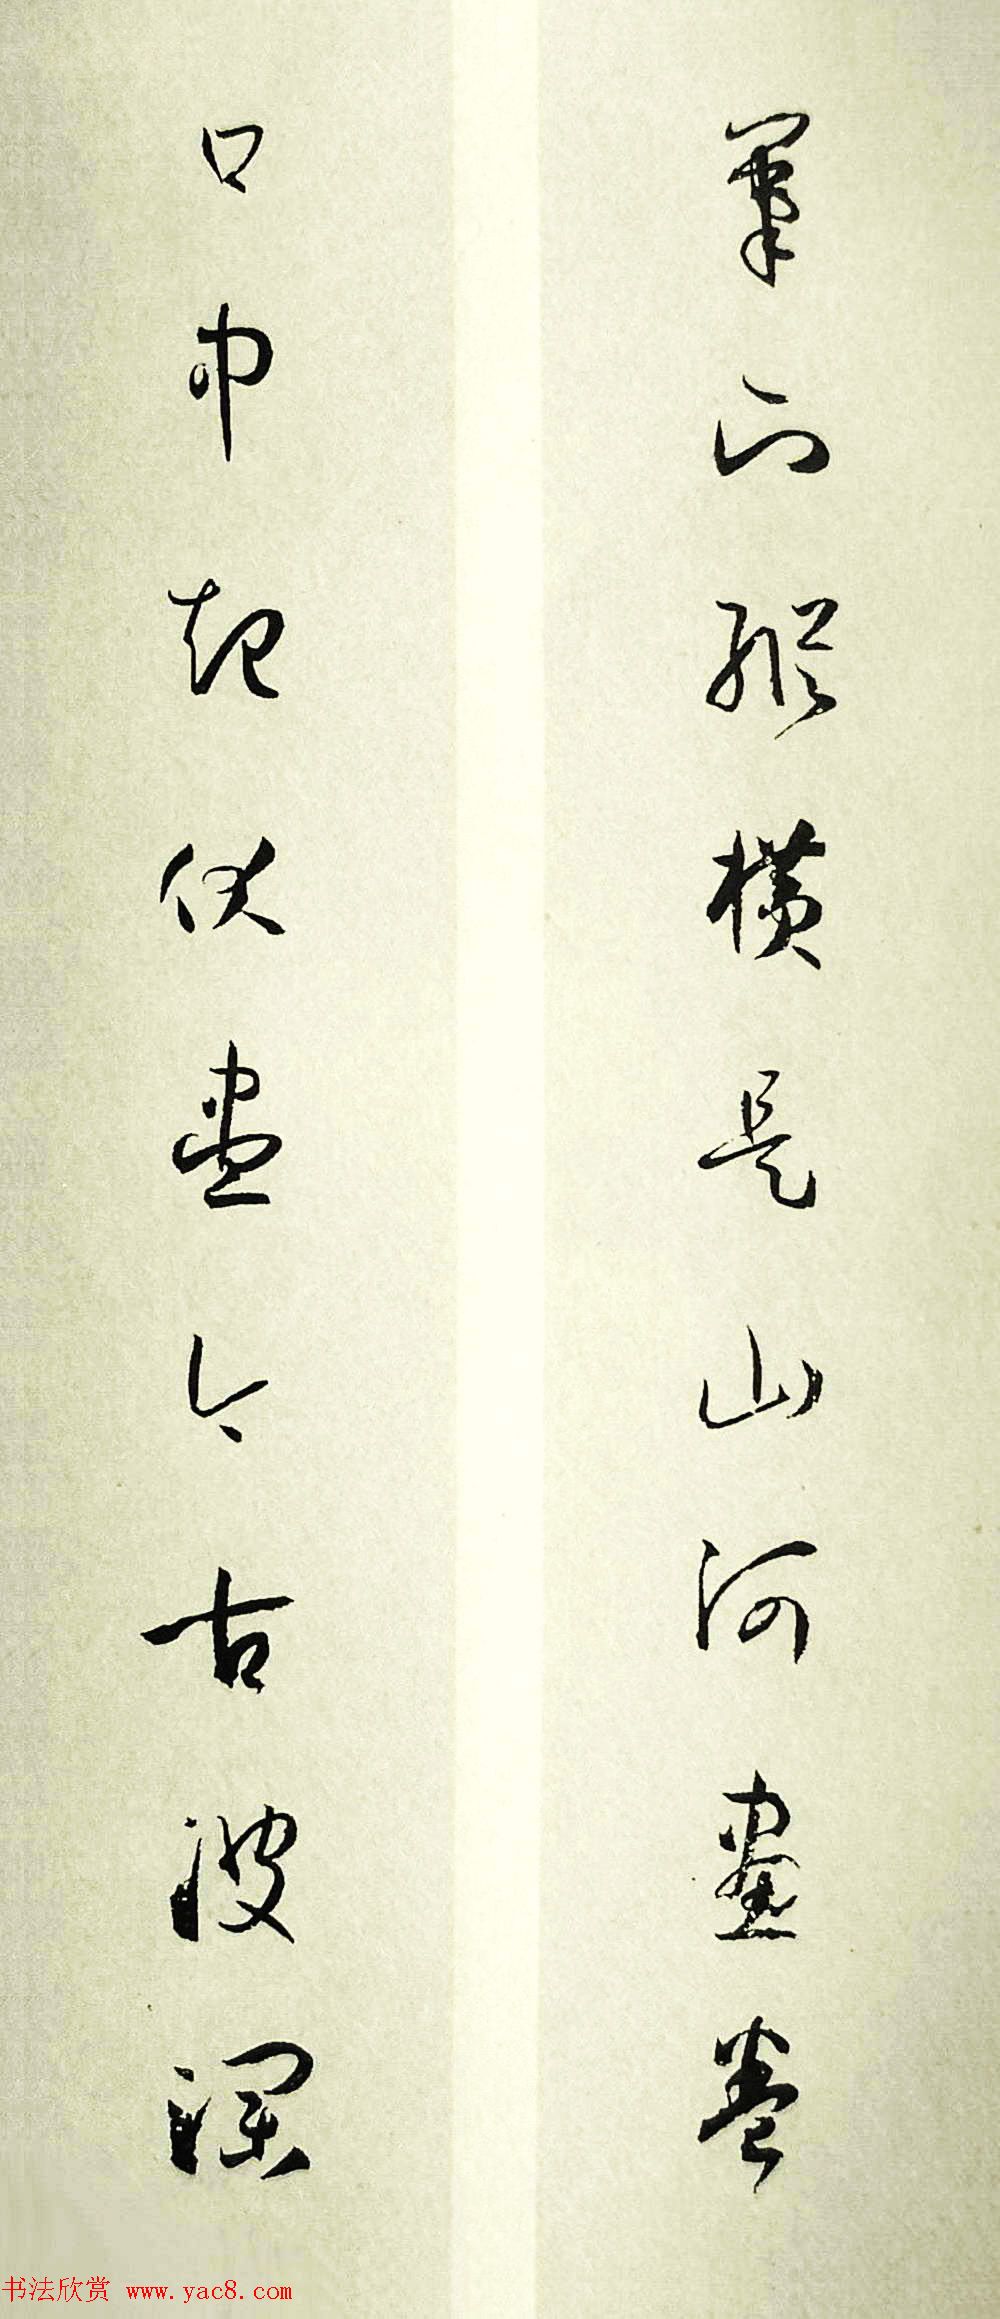 筆下縱橫是山河畫卷
口中起伏盡今古波瀾
书法欣赏 www.yac8.com